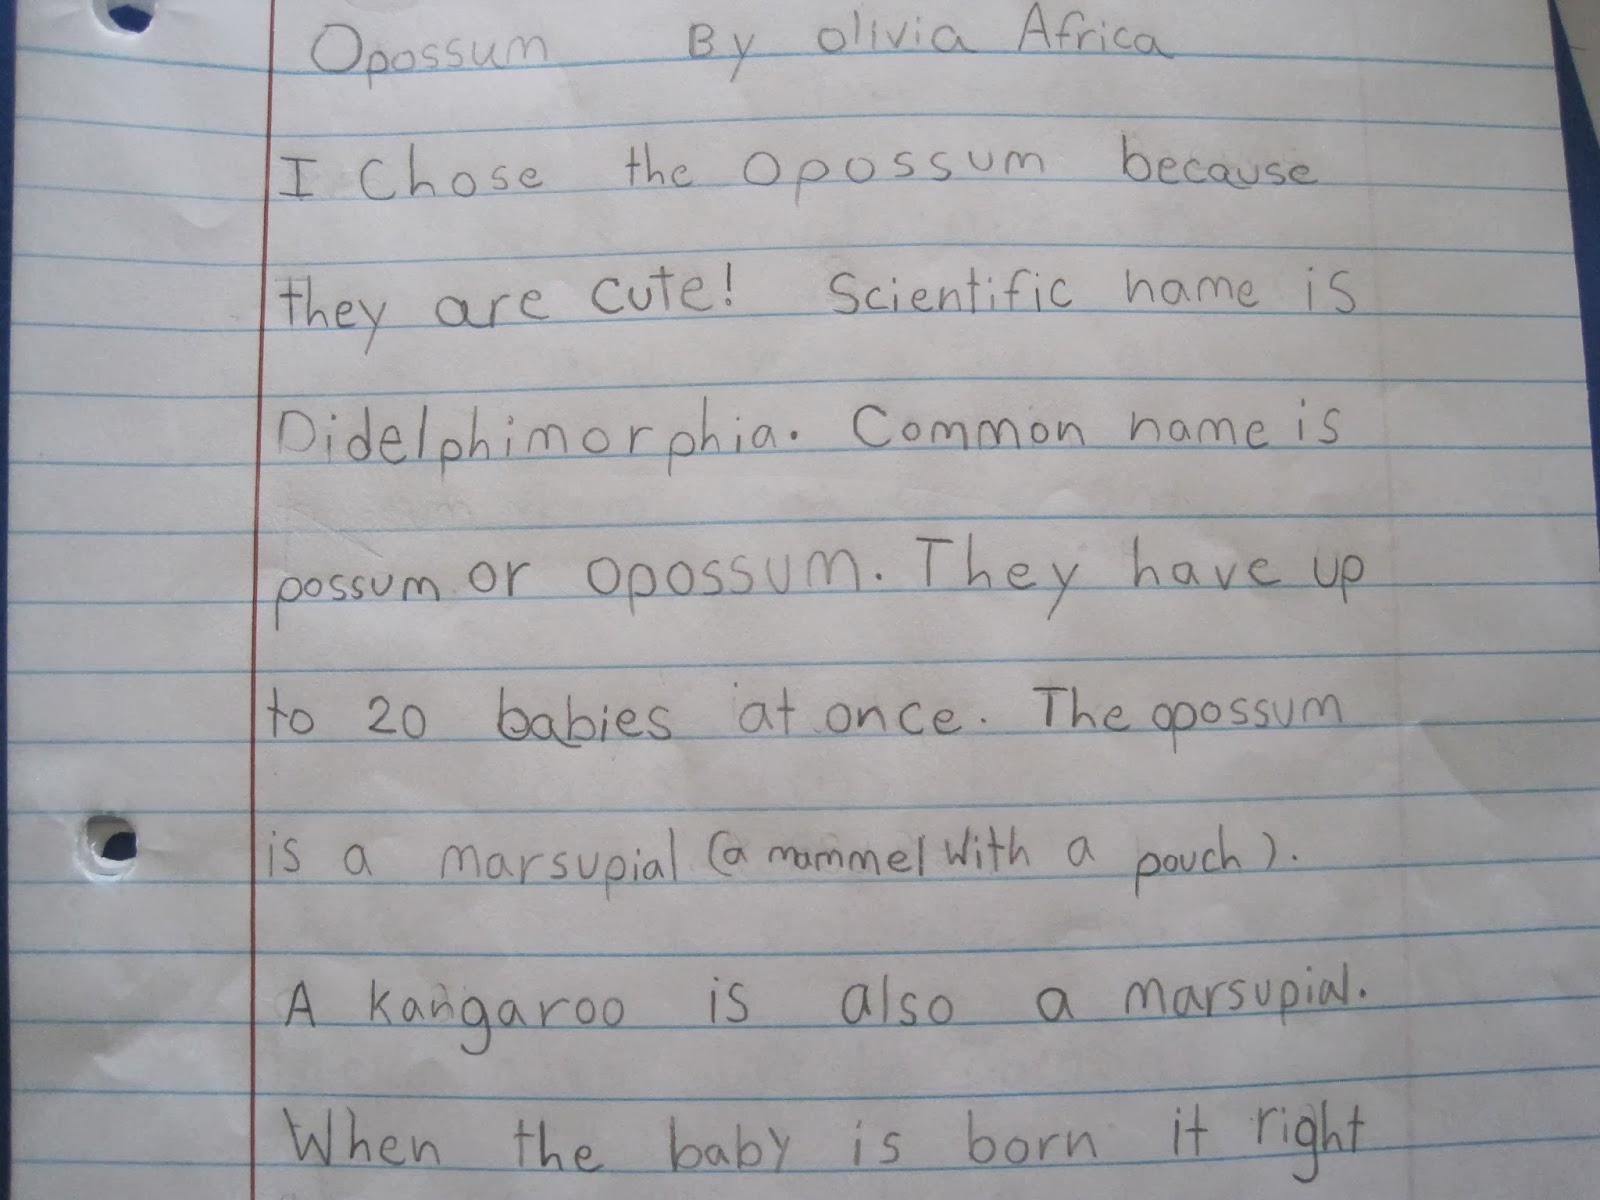 Opossum By olivia Africa
I Chose the opossum because
they are cute! Scientific name is
Didelphimorphia. Common name is
possum or opossum. They have up
to 20 babies at once. The opossum
is a marsupial (a mammel with a pouch).
A kangaroo is also a marsupial.
When the baby is born it right